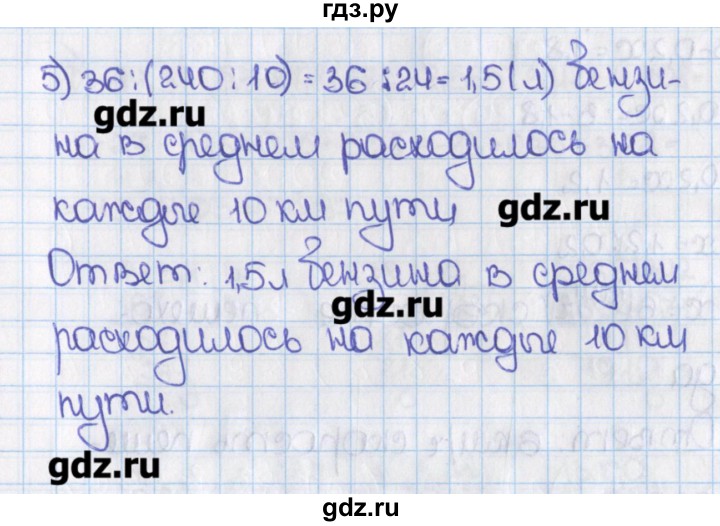 гдз.ру
5) 36:(240:10) = 36:24= 1,5(л) бензи-
gdz.ru
на в среднем расходилось на
каждые 10 км пути,
gdz.ru
Ответ: 1,5л бензина в среднем
gdz.ru
расходилось на каждые 10 км
пути.
gdz.ru
gdz.ru